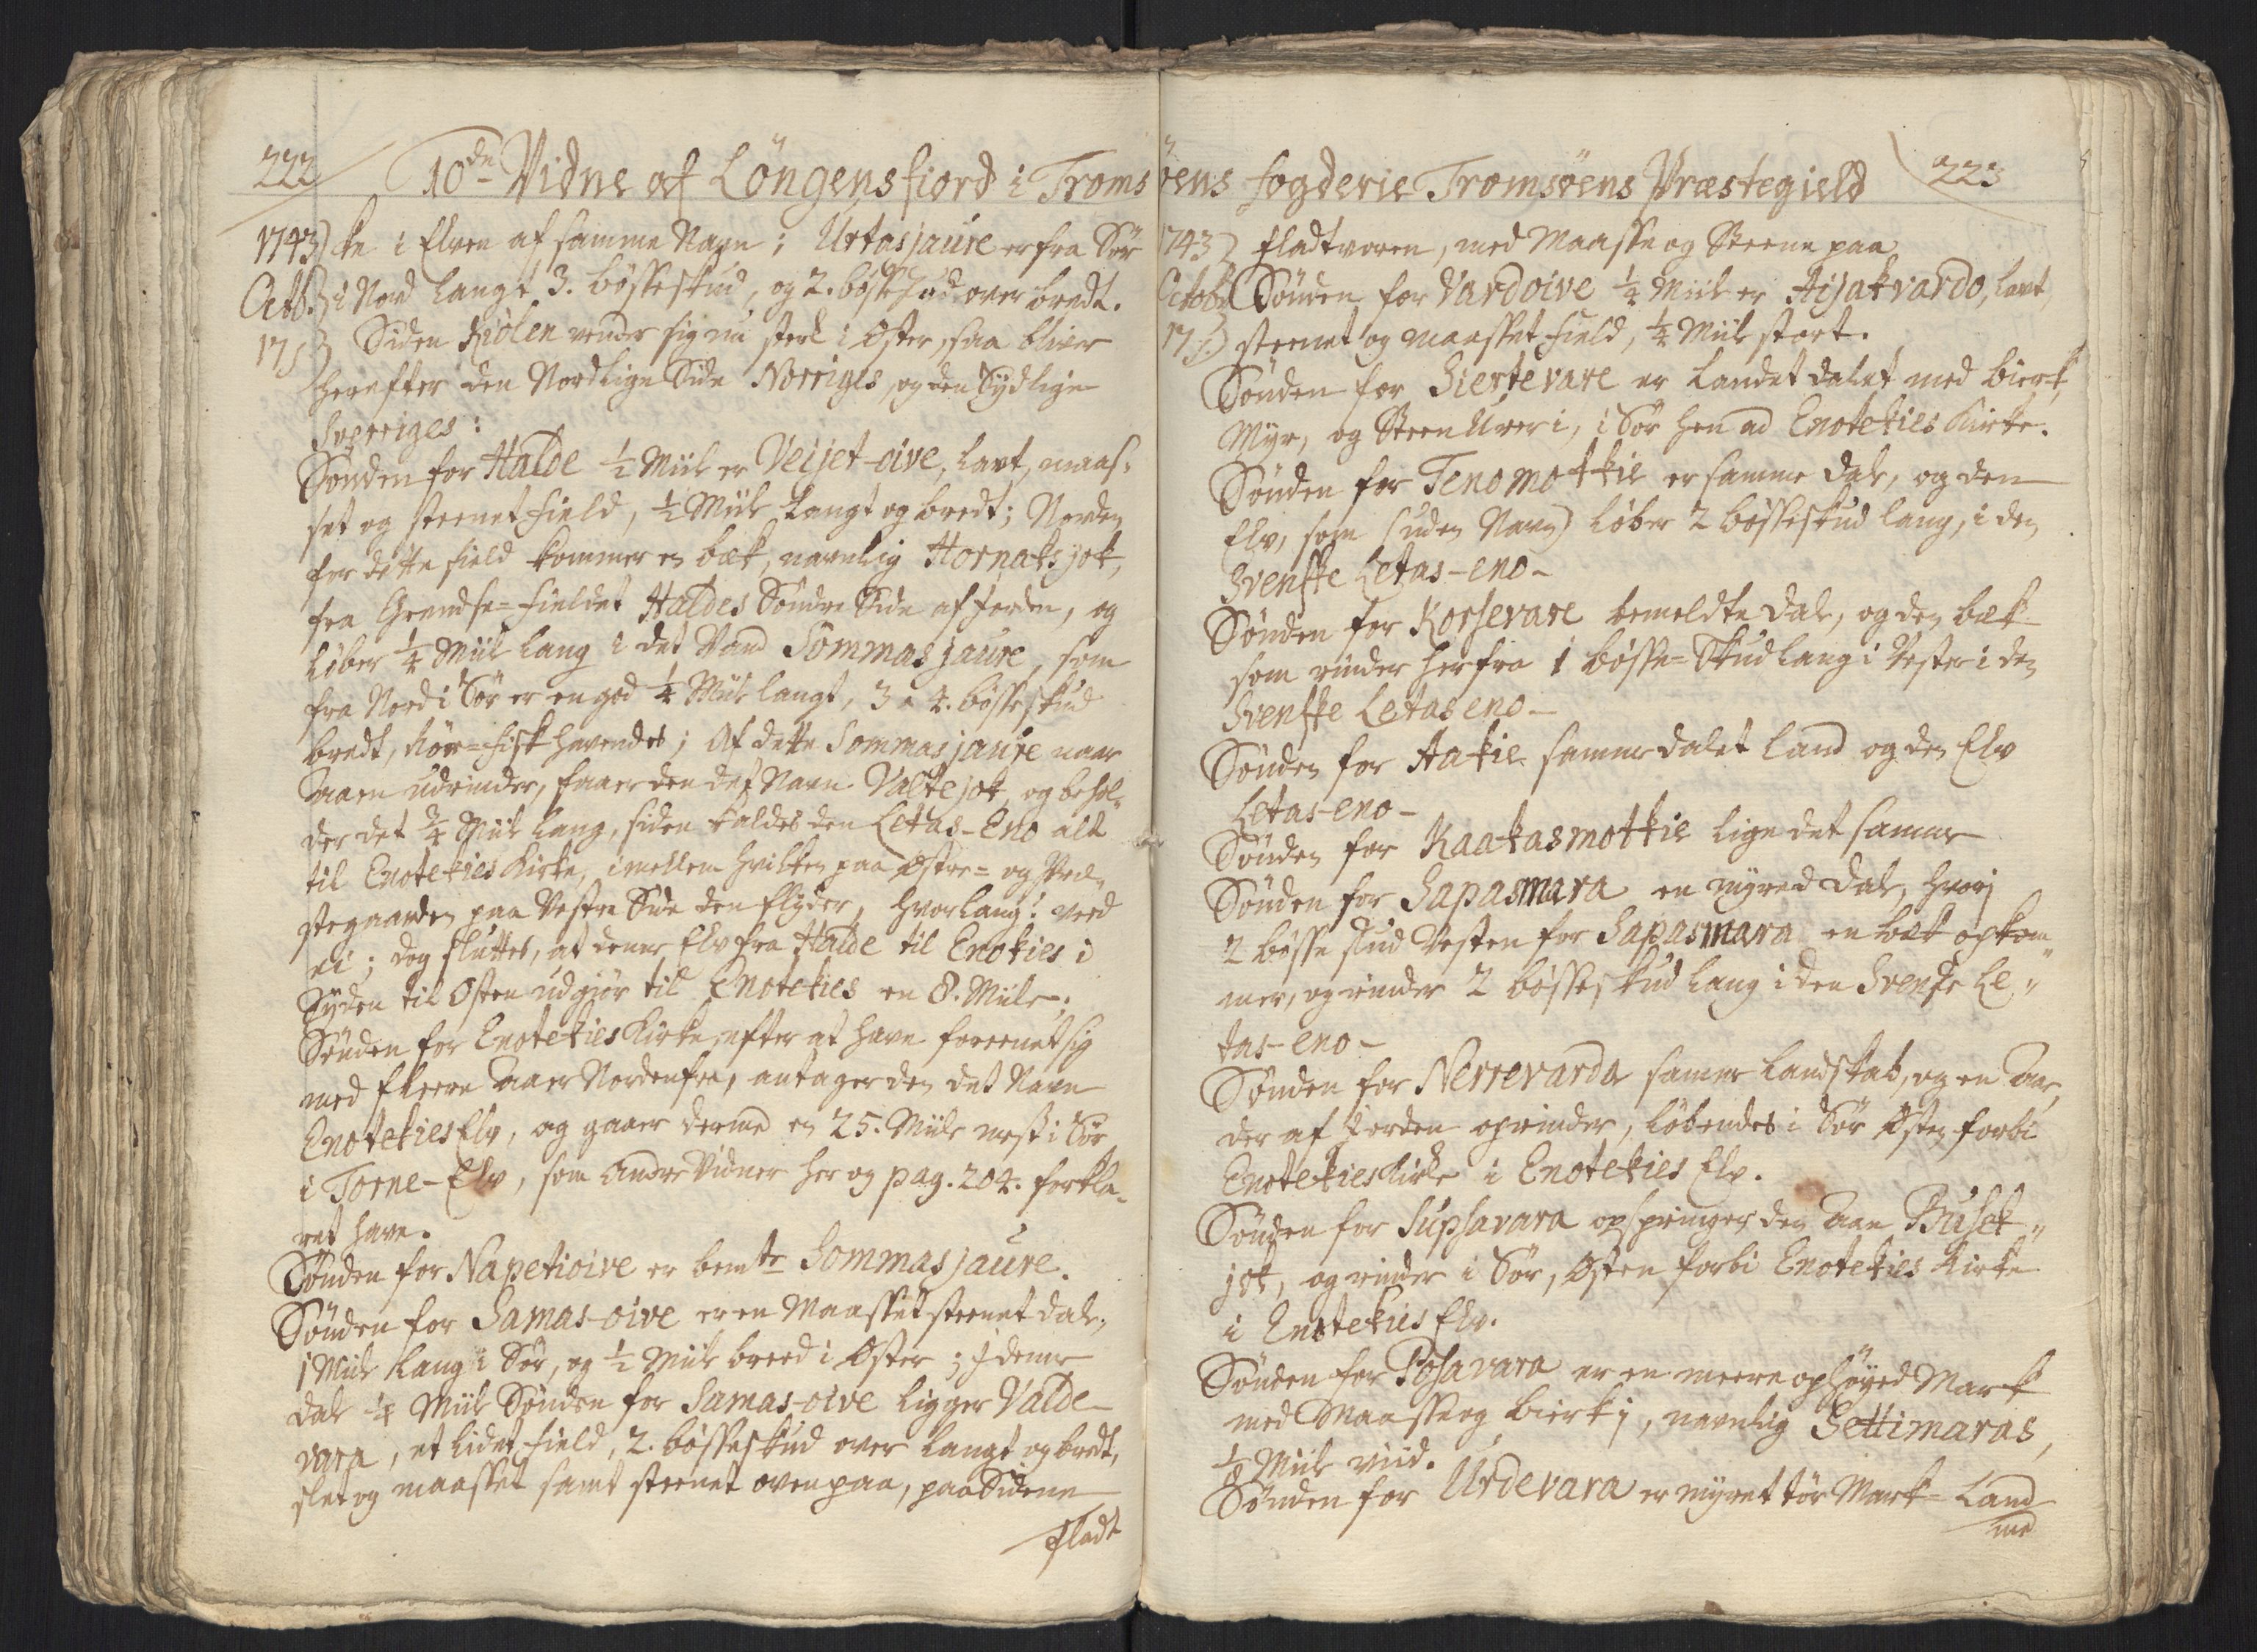 222
10de Vidne af Löngens fiord i Troms
1743) ke i Elven af samme Navn; Urtasjaure er fra Sør
Octb.) i Nord langt 3. bösseskud, og 2. bösseskud over bredt.
17/ Siden Kiölen vender sig nu sterk i Øster, saa bliver
herefter den Nordlige Side Norriges, og den Sydlige
Sverriges:
Sønden for Halde ½ Miil er Veijet-oive, lavt, maas-
set og steenet field, ½ Miil langt og bredt; Norden
for dette field kommer en bæk, navnlig Hornaksjok,
fra Grendse-fieldet Haldes Søndre Side af Jorden, og
løber ¼ Miil lang i det Vand Sommasjaure, som
fra Nord i Sør er en god ¼ Miil langt, 3 a 4. bösseskud
bredt, Rör-fisk havendes; Af dette Sommasjaure naar
Aaen udrinder, faaer den det Navn Valtejok, og behol-
der det ¾ Miil lang, siden kaldes den Letas-Eno alt
til Enotekies Kirke, imellem hvilken paa Østre- og Præ-
stegaarden paa Vestre Side den flyder, hvorlang? veed
ei; dog sluttes, at denne Elv fra Halde til Enokies i
Syden til Osten udgiør til Enotekies en 8. Miile.
Sønden for Enotekies Kirke, efter at have foreenet sig
med fleere Aaer Nordenfra, antager den det Navn
Enotekies Elv, og gaaer dermed en 25. Miile mest i Sør
i Torne-Elv, som andre Vidner her og pag. 204. forkla-
ret have.
Sønden for Napetioive er bemte Sommasjaure.
Sønden for Samas-oive er en Maasset steenet dal,
1 Miil lang i Sør, og ½ Miil breed i Øster; I denne
dal ¼ Miil Sønden for Samas-oive ligger Valde-
vara, et lidet field, 2. bösseskud over langt og bredt,
slet og maasset samt steenet ovenpaa, paa Siderne
fladt
öens fogderie Tromsöens Præstegield
223
1743) fladtvoren, med Maasse og Steene paa
Octobr) Sønden for Vardoive ¼ Miil er Aijakvardo, lavt,
17/) steenet og maasset field, ¼ Miil stort.
Sønden for Siertevare er Landet dalet med bierk,
Myr, og Steen Urer i, i Sør hen ad Enotekies Kirke.
Sønden for Tenomotkie er samme dal, og den
Elv, som (uden Navn) løber 2 bösseskud lang, i den
Svenske Letas-eno-
Sønden for Korsevare bemeldte dal, og den bæk
som rinder herfra 1 bösse-Skud lang i Vester i den
Svenske Letas eno-
Sønden for Aakie samme dalet land og den Elv
Letas-eno-
Sønden for Kaakasmotkie lige det samme
Sønden for Sapasmara en myred dal, hvorj
2 bösse skud Vesten for Sapasmara en bæk opkom-
mer, og rinder 2 bösseskud lang i den Svenske Le-
tas-eno-
Sønden for Nerrevarda samme Landskab, og en Aae,
der af Jorden oprinder, løbendes i Sør Østen forbi
Enotekies Kirke i Enotekies Elv.
Sønden for Supsavara opspringer den Aae Buset-
jok, og rinder i Sør, Østen forbi Enotekies Kirke
i Enotekies Elv.
Sønden for Posavara er en meere ophøyed Mark
med Maasse og bierk i, navnlig Settimaras,
⅛ Miil viid.
Sønden for Urdevara er myret tör Mark-Land
me